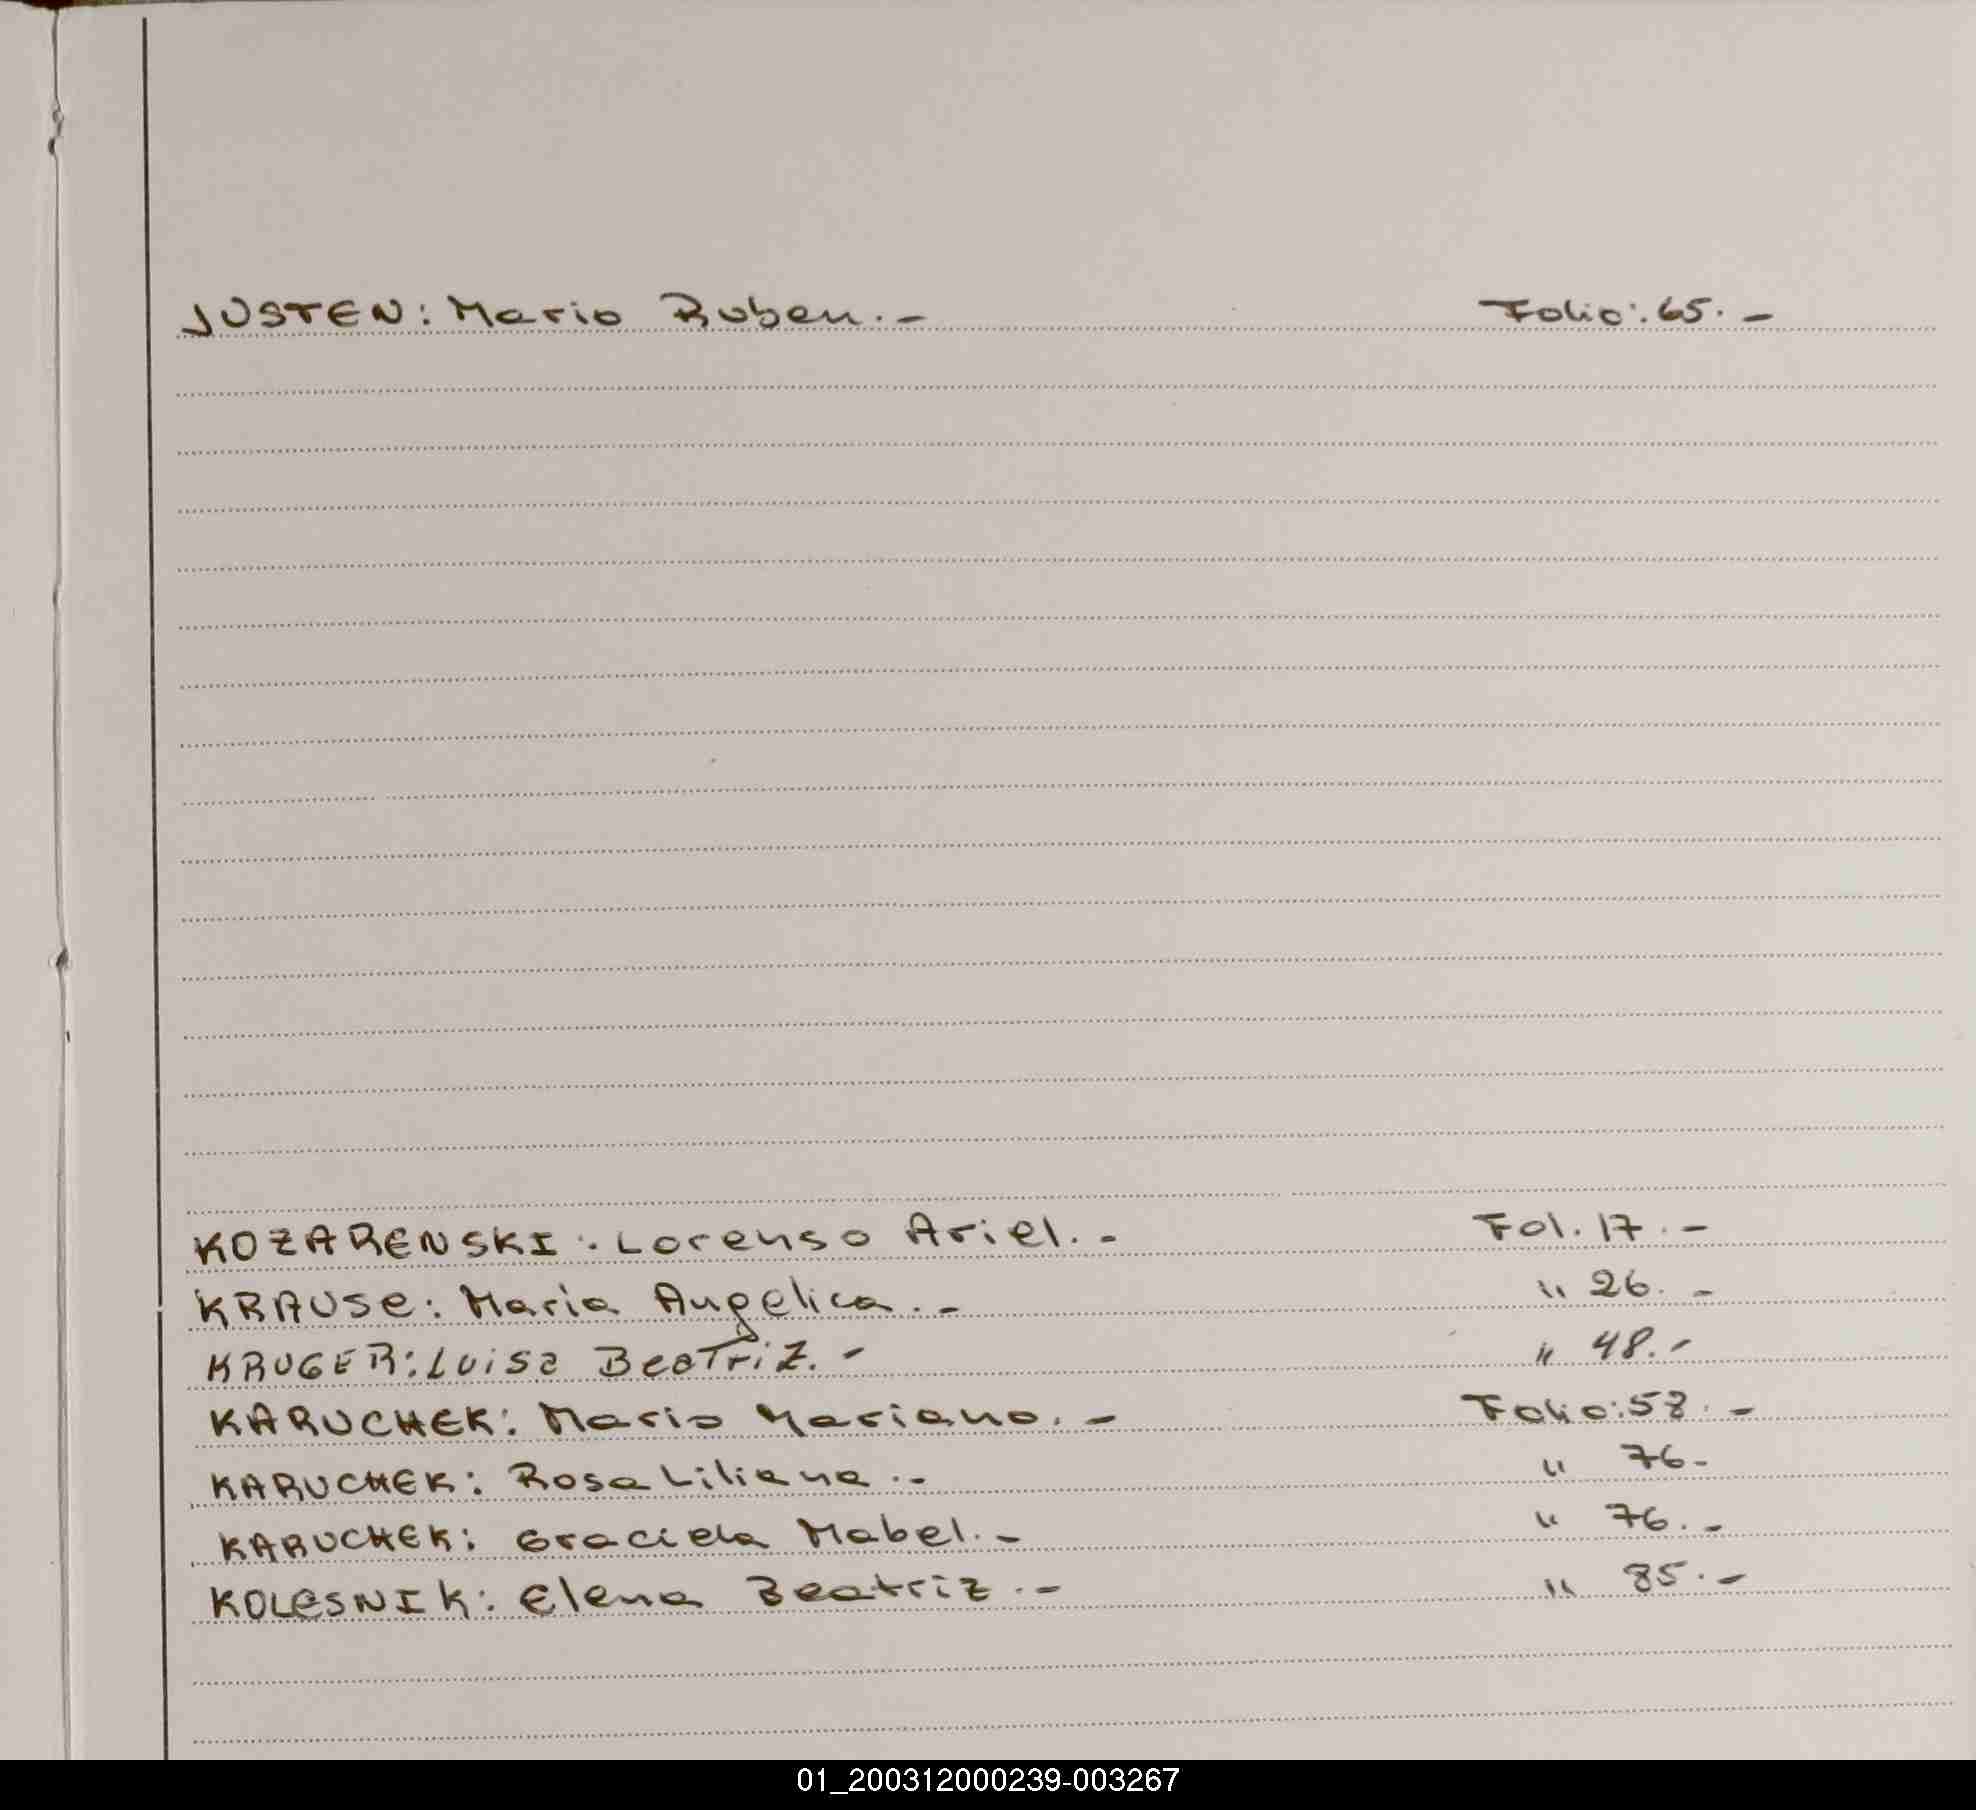 JUSTEN: Mario Ruben.- Folio: 65.-
KOZARENSKI: Lorenso Ariel.- Fol. 17.-
KRAUSe: Maria Angelica.- " 26.-
KRUGER: Luisa Beatriz.- " 48.-
KARUCHEK: Mario Mariano.- Folio: 58.-
KARUCHEK: Rosa Liliana.- " 76-
KARUCHEK: Graciela Mabel.- " 76.-
KOLESNIK: Elena Beatriz.- " 85.-
01_200312000239-003267